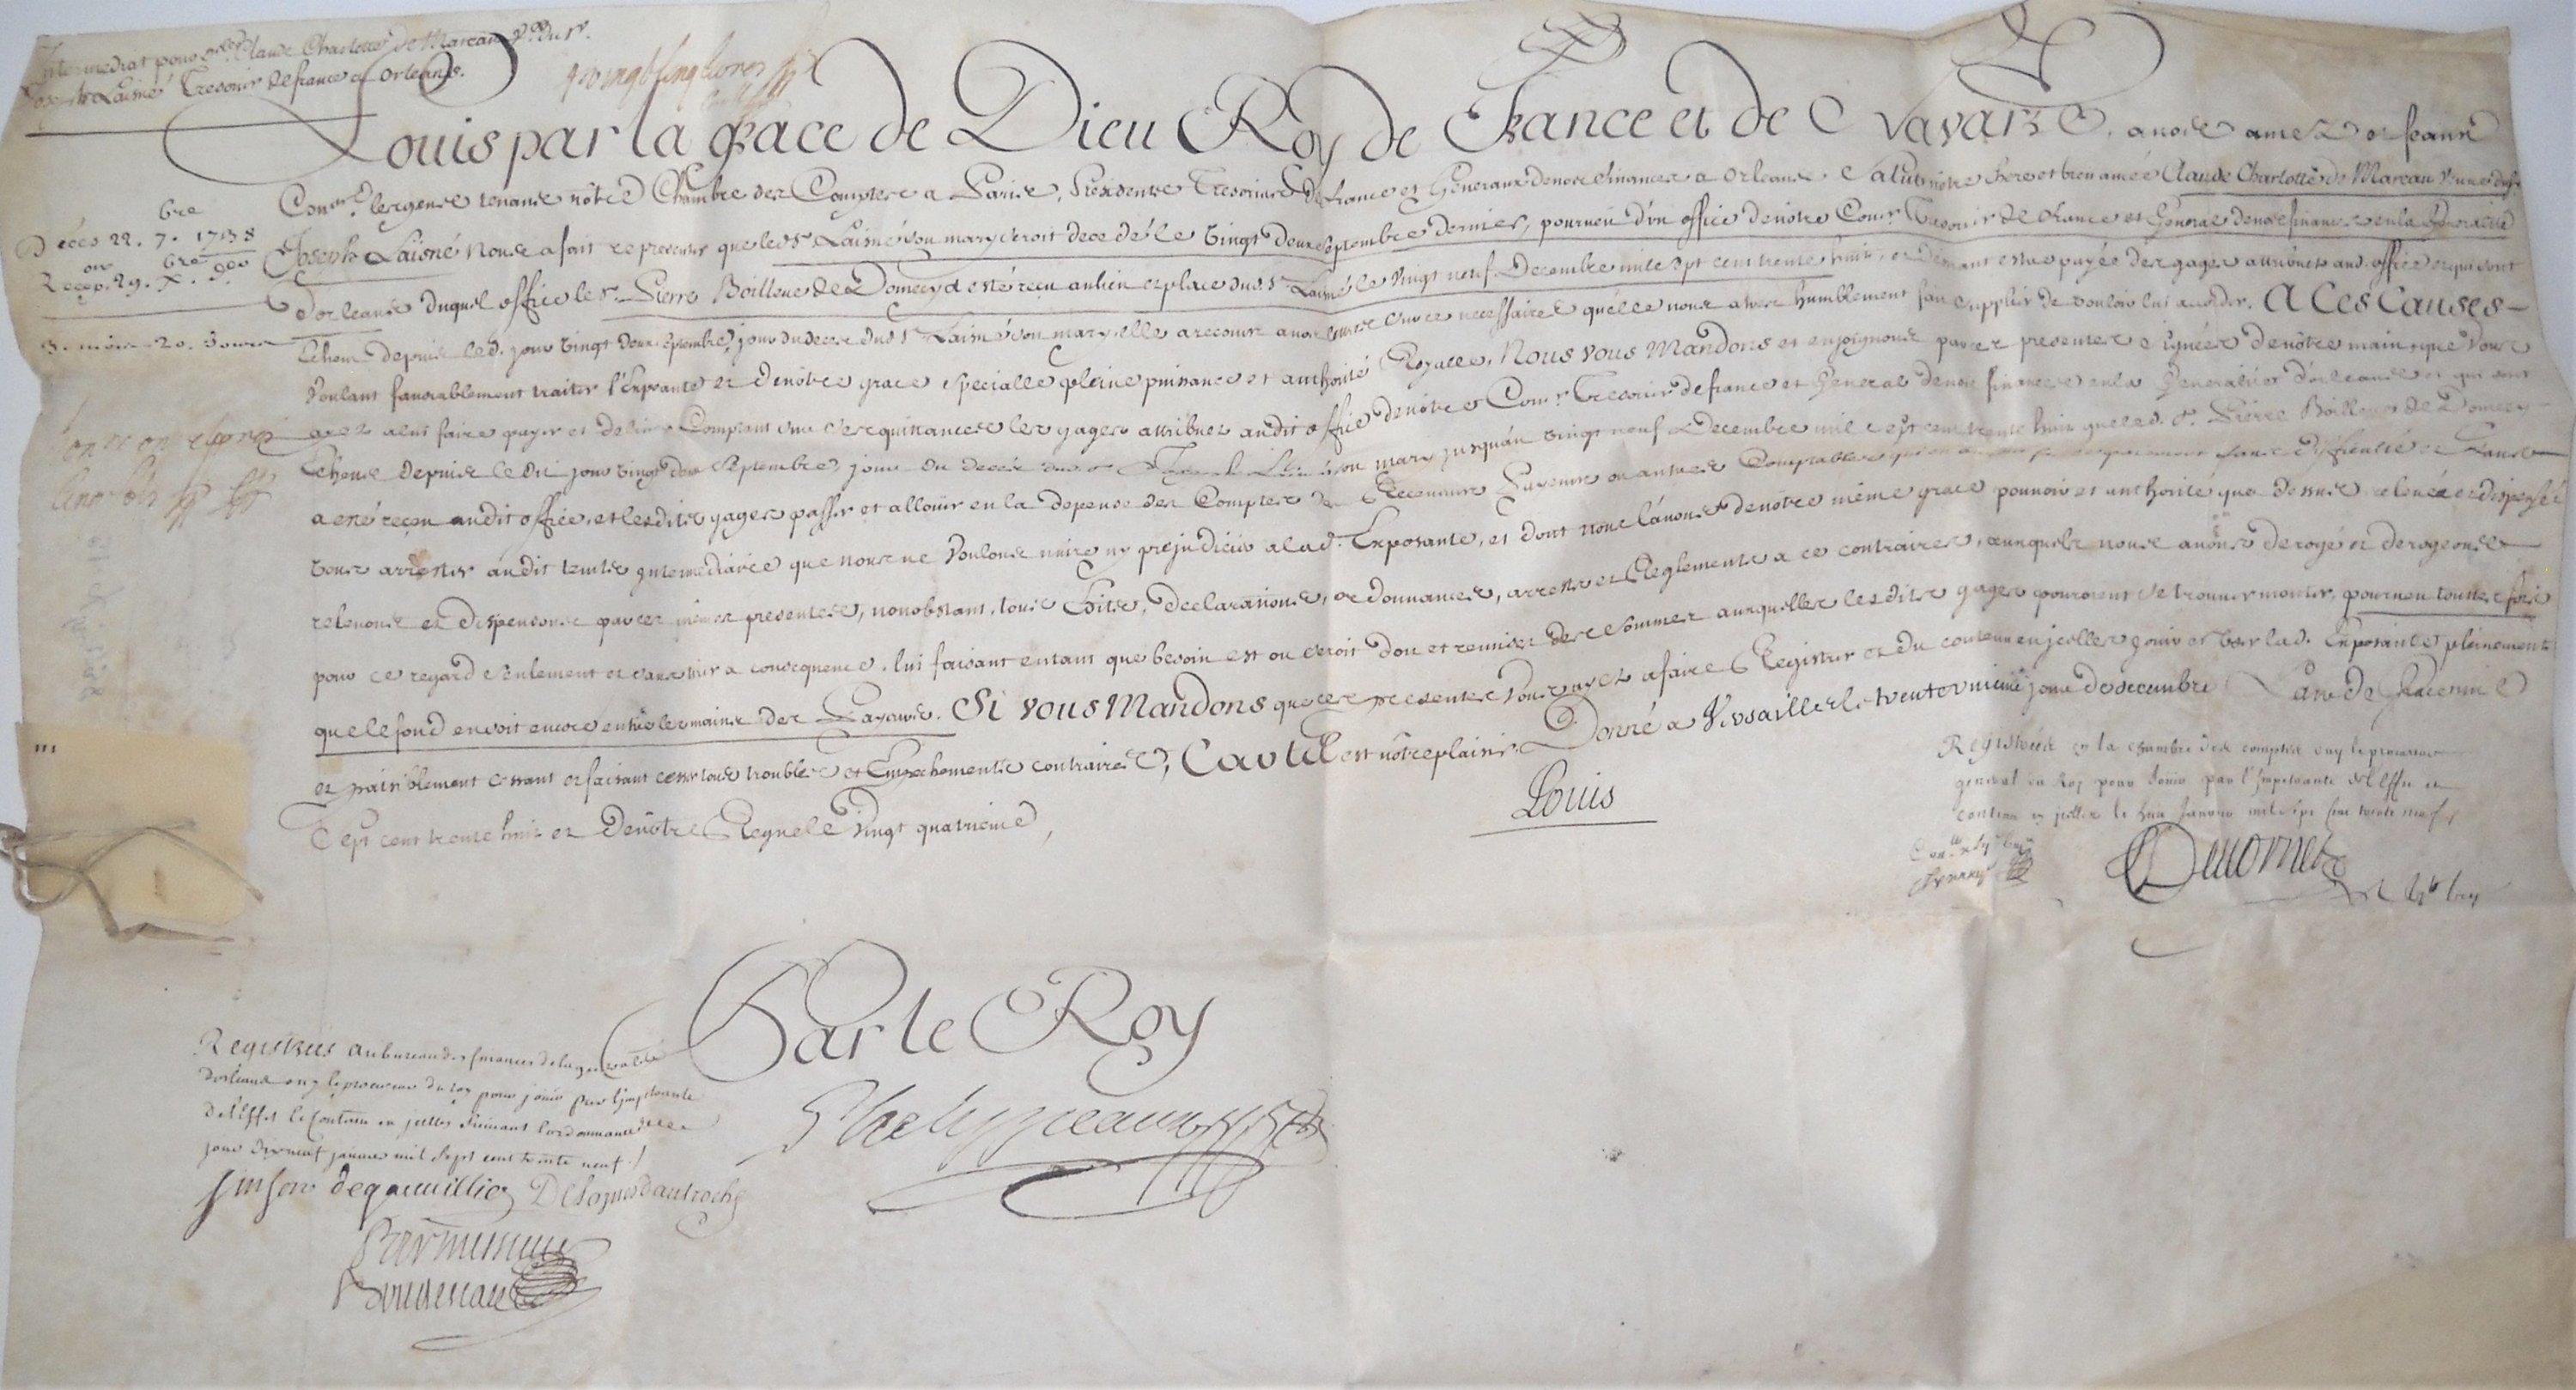 Intermediat pour Claude Charlotte de Mareau du Sr.
Joseph Laisné Tresorier de france a Orleans.
Louis par la grace de Dieu Roy de France et de Navarre, a nos amez et feaux
Con.ers les gens tenans nôtre Chambre des Comptes a Paris, Presidents Tresoriers de France et Generaux de nos finances a Orleans Salut nôtre chere et bien amée Claude Charlotte de Mareau veuve du Sr
Joseph Laisné Nous a fait representer que led. Sr. Laisné son mary seroit decedé le vingt deux Septembre dernier, pourveu d'un office de nôtre Con.er Tresorier de France et General de nos finances en la Generalité
d'orleans duquel office le Sr. Pierre Boilleve de Domecy a esté reçu au lieu et place dud. Sr. Laisné le vingt neuf Decembre mil sept cent trente huit, et desirant estre payée des gages attribuez aud. office et qui sont
echeus depuis led. jour vingt deux Septembre, jour du decez dud. Sr Laisné son mary, elle a recours a nos lettres sur ce necessaires qu'elle nous a tres humblement fait supplier de vouloir lui accorder. A Ces Causes
Voulant favorablement traiter l'Exposante et de nôtre grace specialle pleine puissance et authorité Royalle, Nous vous Mandons et enjoignons par ces presentes signées de nôtre main que vous
ayez a lui faire payer et delivrer Comptant sur ses quittances les gages attribuez audit office de nôtre Con.er Tresorier de france et General de nos finances en la Generalité d'orleans et qui sont
echeus depuis le dit jour vingt deux Septembre, jour du decez son mary jusqu'au vingt neuf Decembre mil sept cent trente huit que led. Sr. Pierre Boilleve de Domecy
a esté reçeu audit office, et lesdits gages passer et alloüer en la depense des Comptes des Receveurs Payeurs ou autres Comptables sans difficulté et sans
vous arrester audit tems intermediaire que nous ne voulons nuire ny prejudicier a lad. Exposante, et dont nous l'avons de nôtre même grace pouvoir et authorité que dessus relevée et dispensée
relevons et dispensons par ces mêmes presentes, nonobstant tous Edits, Declarations, ordonnances, arrests et Reglements a ce contraires, auxquels nous avons derogé et derogeons
pour ce regard seulement et sans tirer a consequence. lui faisant entant que besoin est ou seroit don et remise des sommes auxquelles lesdits gages pourroient se trouver monter, pourveu touttes fois
que le fond en soit encore entre les mains des Payeurs. Si vous Mandons que ces presentes vous ayez a faire Registrer et du contenu en icelles joüir et user lad. Exposante pleinement
et paisiblement cessant et faisant cesser tous troubles et Empechements contraires, Car tel est nôtre plaisir. Donné a Versailles le trente unieme jour de decembre L'an de grace mil
Sept cent trente huit et de nôtre Regne le vingt quatrieme,
Decés 22. 7.bre 1738
Recep. 29. X.bre d.o
3. mois 20. jours
Louis
Registrées en la chambre des comptes ouy le procureur
general du Roy pour joüir par l'Impetrante de l'effet et
contenu en icelles le huit Janvier mil sept cent trente neuf
Par le Roy
Phelypeaux
Registrées au bureau des finances de la generalité
d'orleans ouy le procureur du roy pour joüir par l'impetrante
de l'effet et contenu en icelles suivant l'ordonnance de ce
jour dixneuf janvier mil sept cent trente neuf